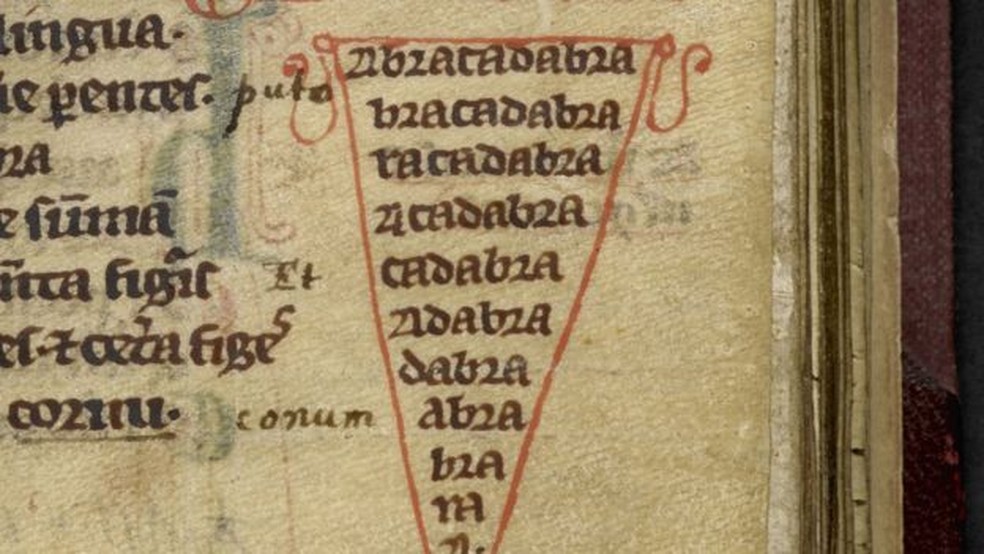 lingua.
ie ꝑentes. puto
bra
e sūmā
ñta figīs Et
es ⁊ cet̃a figes
cornu. conum
Abracadabra
bracadabra
racadabra
Acadabra
cadabra
Adabra
dabra
abra
bra
ra
A.